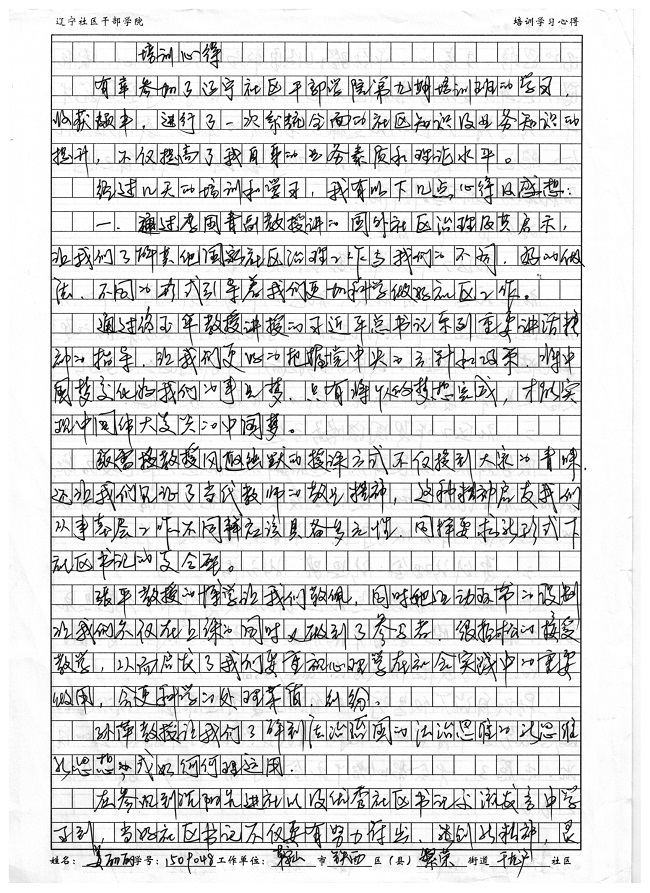 辽宁社区干部学院 培训学习心得
培训心得
有幸参加了辽宁社区干部学院第九期培训班的学习，
收获颇丰，进行了一次系统全面的社区知识及业务知识的
提升，不仅提高了我自身的业务素质和理论水平。
经过几天的培训和学习，我有以下几点心得及感想：
一．通过李国青副教授讲的国外社区治理及其启示，
让我们了解其他国家社区治理工作与我们的不同，好的做
法、不同的形式引导着我们更加科学做好社区工作。
通过 玉华教授讲授的习近平总书记系列重要讲话精
神的指导，让我们更好的把握党中央的方针和政策，将中
国梦变化为我们的事业梦，只有将个人的梦想完成，才能实
现中国伟大复兴的中国梦。
教授风趣幽默的授课方式不仅授到大家的青睐，
还让我们见证了当代教师的敬业精神，这种精神启发我们
从事基层工作，不同 应该具备多元性，同样要 新形式下
社区书记的
张平教授的博学让我们敬佩，同时她互动环节的设制
让我们不仅在上课的同时又做到了参与者，很轻松的接受
教学，从而启发了我们要重视心理学在社会实践中的重要
作用，会更科学的处理 纠纷。
孙萍教授让我们了解到法治治国的法治思维的新思维
新思想 或如何 运用．
在参观到沈阳先进社 以及优秀社区书记 发言中学
习到，当好社区书记不仅要有努力付出、 精神，
姓名： 丽丽 学号：1509048 工作单位：鞍山 市 铁西 区（县） 繁荣 街道 社区